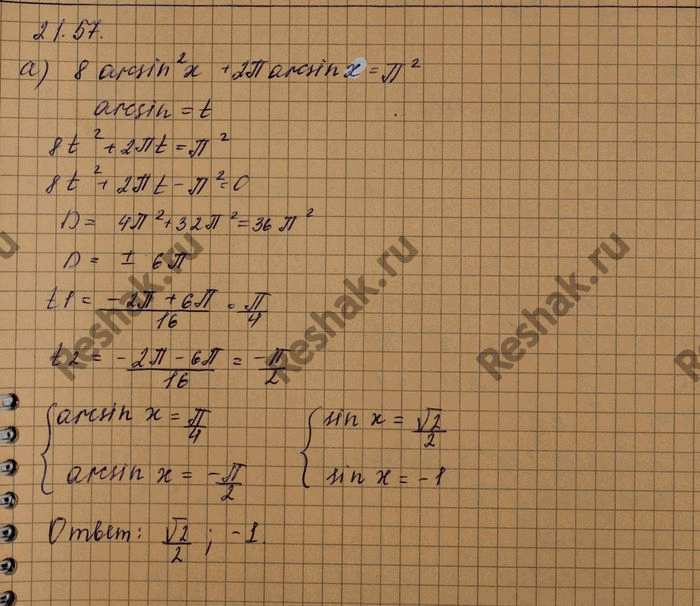 21.57.
а) 8 arcsin²x + 2π arcsin x = π²
arcsin = t
8t² + 2πt = π²
8t² + 2πt - π² = 0
D = 4π² + 32π² = 36π²
D = ± 6π
t1 = (-2π + 6π)/16 = π/4
t2 = -(2π - 6π)/16 = -π/2
{ arcsin x = π/4 { sin x = √2/2
arcsin x = -π/2 sin x = -1
Ответ: √2/2 ; -1.
Reshak.ru
Reshak.ru
Reshak.ru